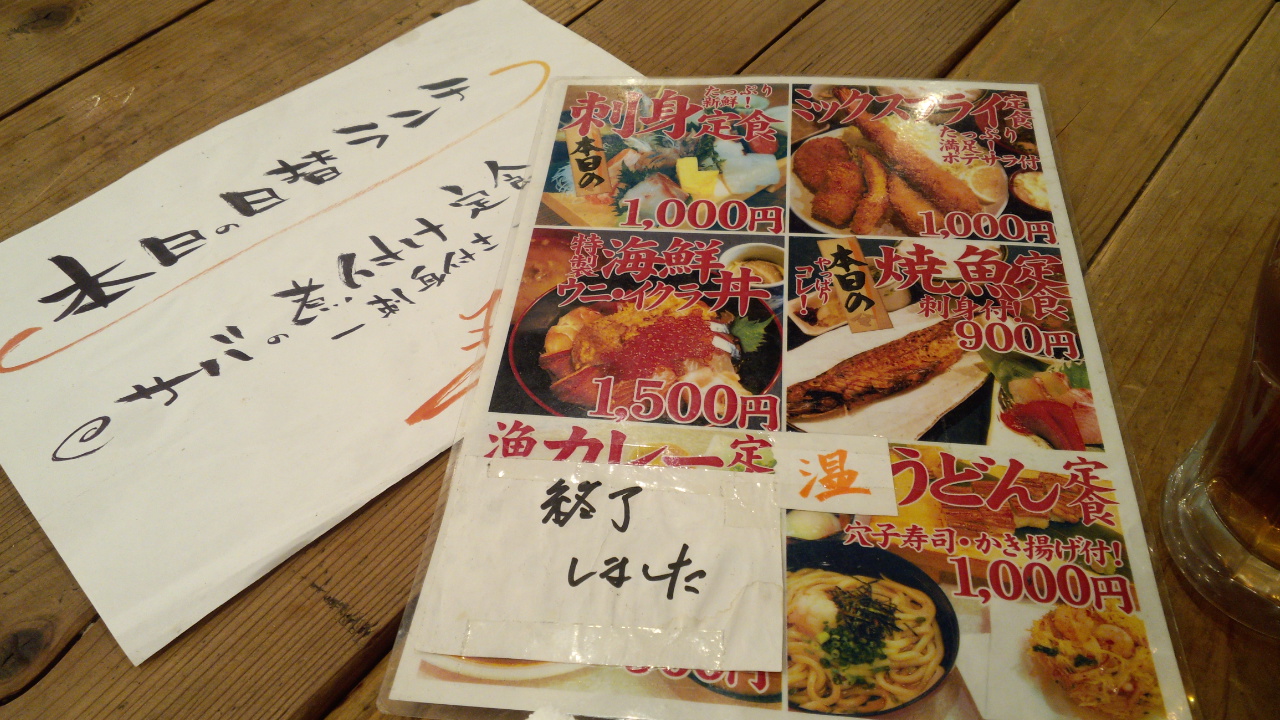 本日の日替ランチ
サバの
定食
刺身定食
たっぷり
新鮮！
本日の
1,000円
ミックスフライ定食
たっぷり
満足！
ポテサラ付
1,000円
特製
海鮮
ウニ・イクラ丼
1,500円
本日の
やっぱり
コレ！
焼魚定食
刺身付！
900円
漁カレー定
終了
しました
温
うどん定食
穴子寿司・かき揚げ付！
1,000円